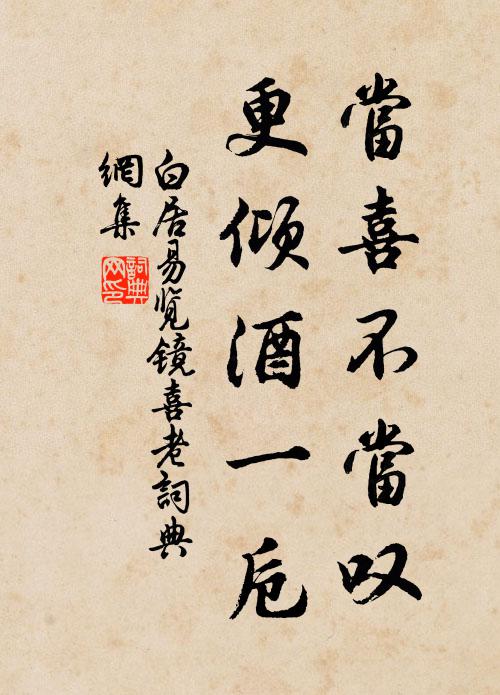 當喜不當叹
更倾酒一卮
白居易览镜喜老詞典
網集
詞典
网印